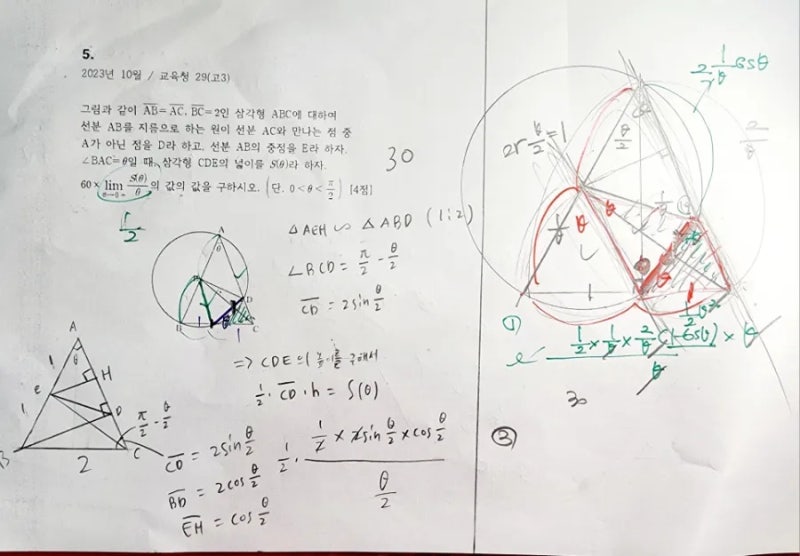 5.
2023년 10월 / 교육청 29(고3)
그림과 같이 AB=AC, BC=2인 삼각형 ABC에 대하여
선분 AB를 지름으로 하는 원이 선분 AC와 만나는 점 중
A가 아닌 점을 D라 하고, 선분 AB의 중점을 E라 하자.
∠BAC=θ일 때, 삼각형 CDE의 넓이를 S(θ)라 하자.
60× lim θ→0+ S(θ)/θ 의 값의 값을 구하시오. (단, 0<θ<π/2) [4점]
30
1/2
A
θ
B
D
C
1
θ
1
△AEH ∽ △ABD (1:2)
∠BCD = π/2 - θ/2
CD = 2sin θ/2
⇒ CDE의 구해서
1/2 · CD · h = S(θ)
A
θ
1
H
e
1
D
π/2 - θ/2
B
2
C
CD = 2sin θ/2
BD = 2cos θ/2
EH = cos θ/2
1/2 · 1/2 × 2sin θ/2 × cos θ/2
θ/2
2r θ/2 = 1
θ/2
2/θ
1/θ
θ
θ
1
①
1/2 × 1/θ × 2/θ (1-cosθ) × θ
θ
30
③